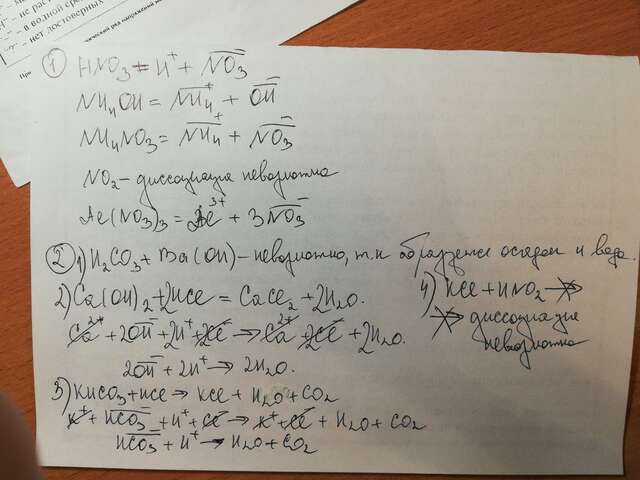 не рас
в водной сре
нет достоверных
При
ческий ряд напряжений ме
① HNO₃ = H⁺ + NO₃⁻
NH₄OH = NH₄⁺ + OH⁻
NH₄NO₃ = NH₄⁺ + NO₃⁻
NO₂ - диссоциация невозможна
Al(NO₃)₃ = Al³⁺ + 3NO₃⁻
② 1) H₂CO₃ + Ba(OH) - невозможно, т.к образуется осадок и вода.
2) Ca(OH)₂ + 2HCl = CaCl₂ + 2H₂O.
Ca²⁺ + 2OH⁻ + 2H⁺ + 2Cl⁻ → Ca²⁺ 2Cl⁻ + 2H₂O.
2OH⁻ + 2H⁺ → 2H₂O.
3) KHCO₃ + HCl → KCl + H₂O + CO₂
K⁺ + HCO₃⁻ + H⁺ + Cl⁻ → K⁺ + Cl⁻ + H₂O + CO₂
HCO₃⁻ + H⁺ → H₂O + CO₂
4) KCl + HNO₂ ↛
↛ диссоциация
невозможна